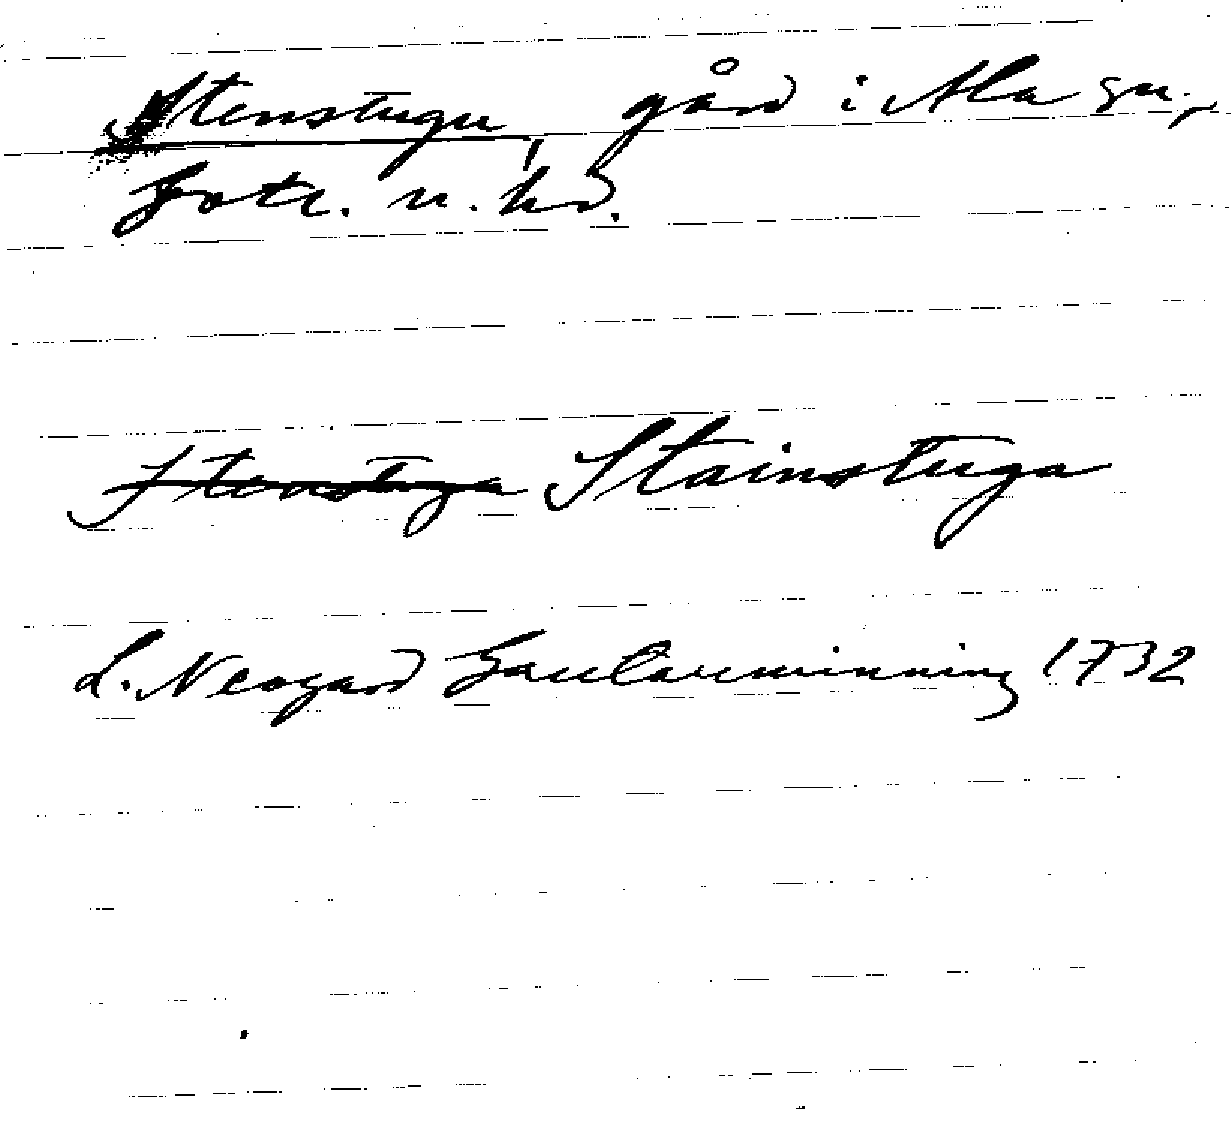 Stenstugu, gård i Ala sn.,
Gotl. n. hd.
Stenstuga Stainstuga
L. Neogard Gautauminning 1732